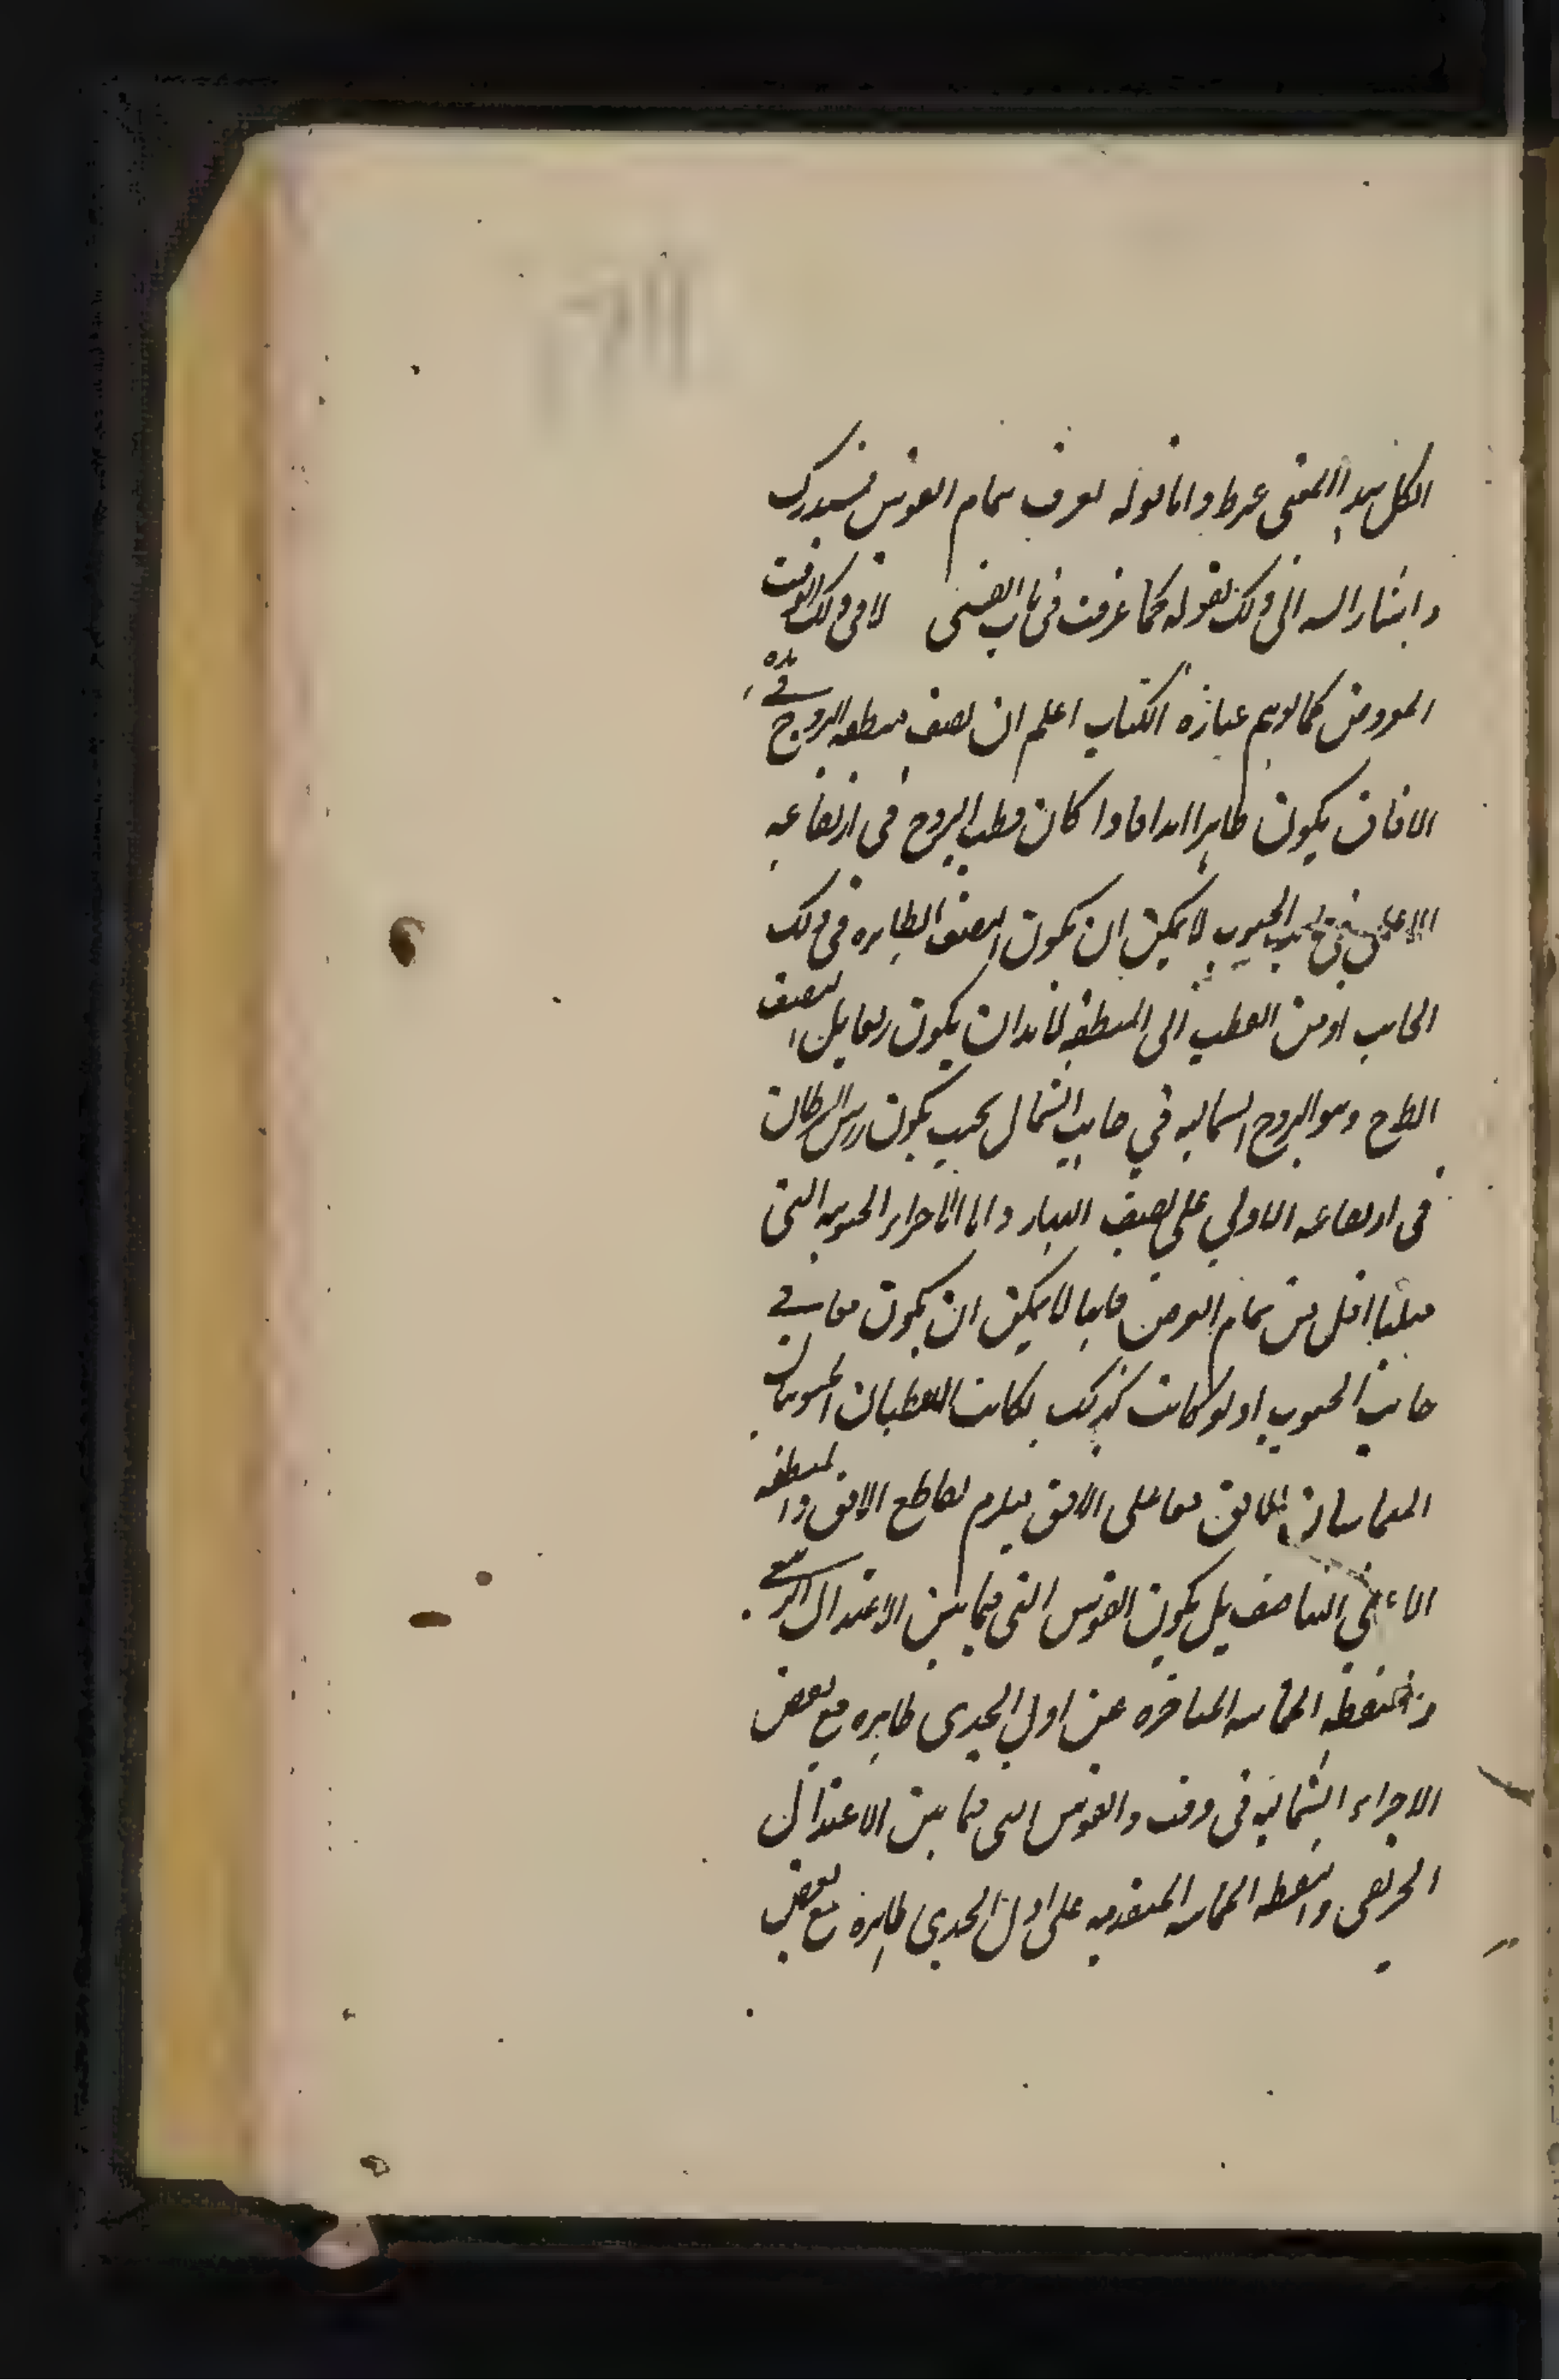 الكل بهذا المعنى غير ط واما قوله يعرف تمام القوس فيستدرك
واشار اليه الى ذلك بقوله كما عرفت فى باب القسى لا فى ذلك الوقت
المعروض كما يوهم عبارة الكتاب اعلم ان نصف منطقة البروج فى هذه
الافاق يكون ظاهرا ابدا فاذا كان قطب البروج فى ارتفاعه
الاعلى فى جانب الجنوب لا يمكن ان يكون النصف الظاهر فى ذلك
الجانب اذ من القطب الى المنطقة لا بد ان يكون ربعا بل النصف
الطالع وهو البروج الشمالية فى جانب الشمال بحيث يكون راس السرطان
فى ارتفاعه الاولى على نصف النهار واما الاجزاء الجنوبية التى
ميلها اقل من تمام العرض فانها لا يمكن ان يكون معا فى
جانب الجنوب اذ لو كانت كذلك لكانت النقطتان الجنوبيتان
المتماستان للافق معا على الافق فيلزم تقاطع الافق والمنطقة
لا على التناصف بل يكون القوس التى فيما بين الاعتدال الربيعى
والنقطة المماسة المتاخرة عن اول الجدى ظاهرة مع بعض
الاجزاء الشمالية فى وقت والقوس التى فيما بين الاعتدال
الخريفى والنقطة المماسة المتقدمة على اول الجدى ظاهرة مع بعض